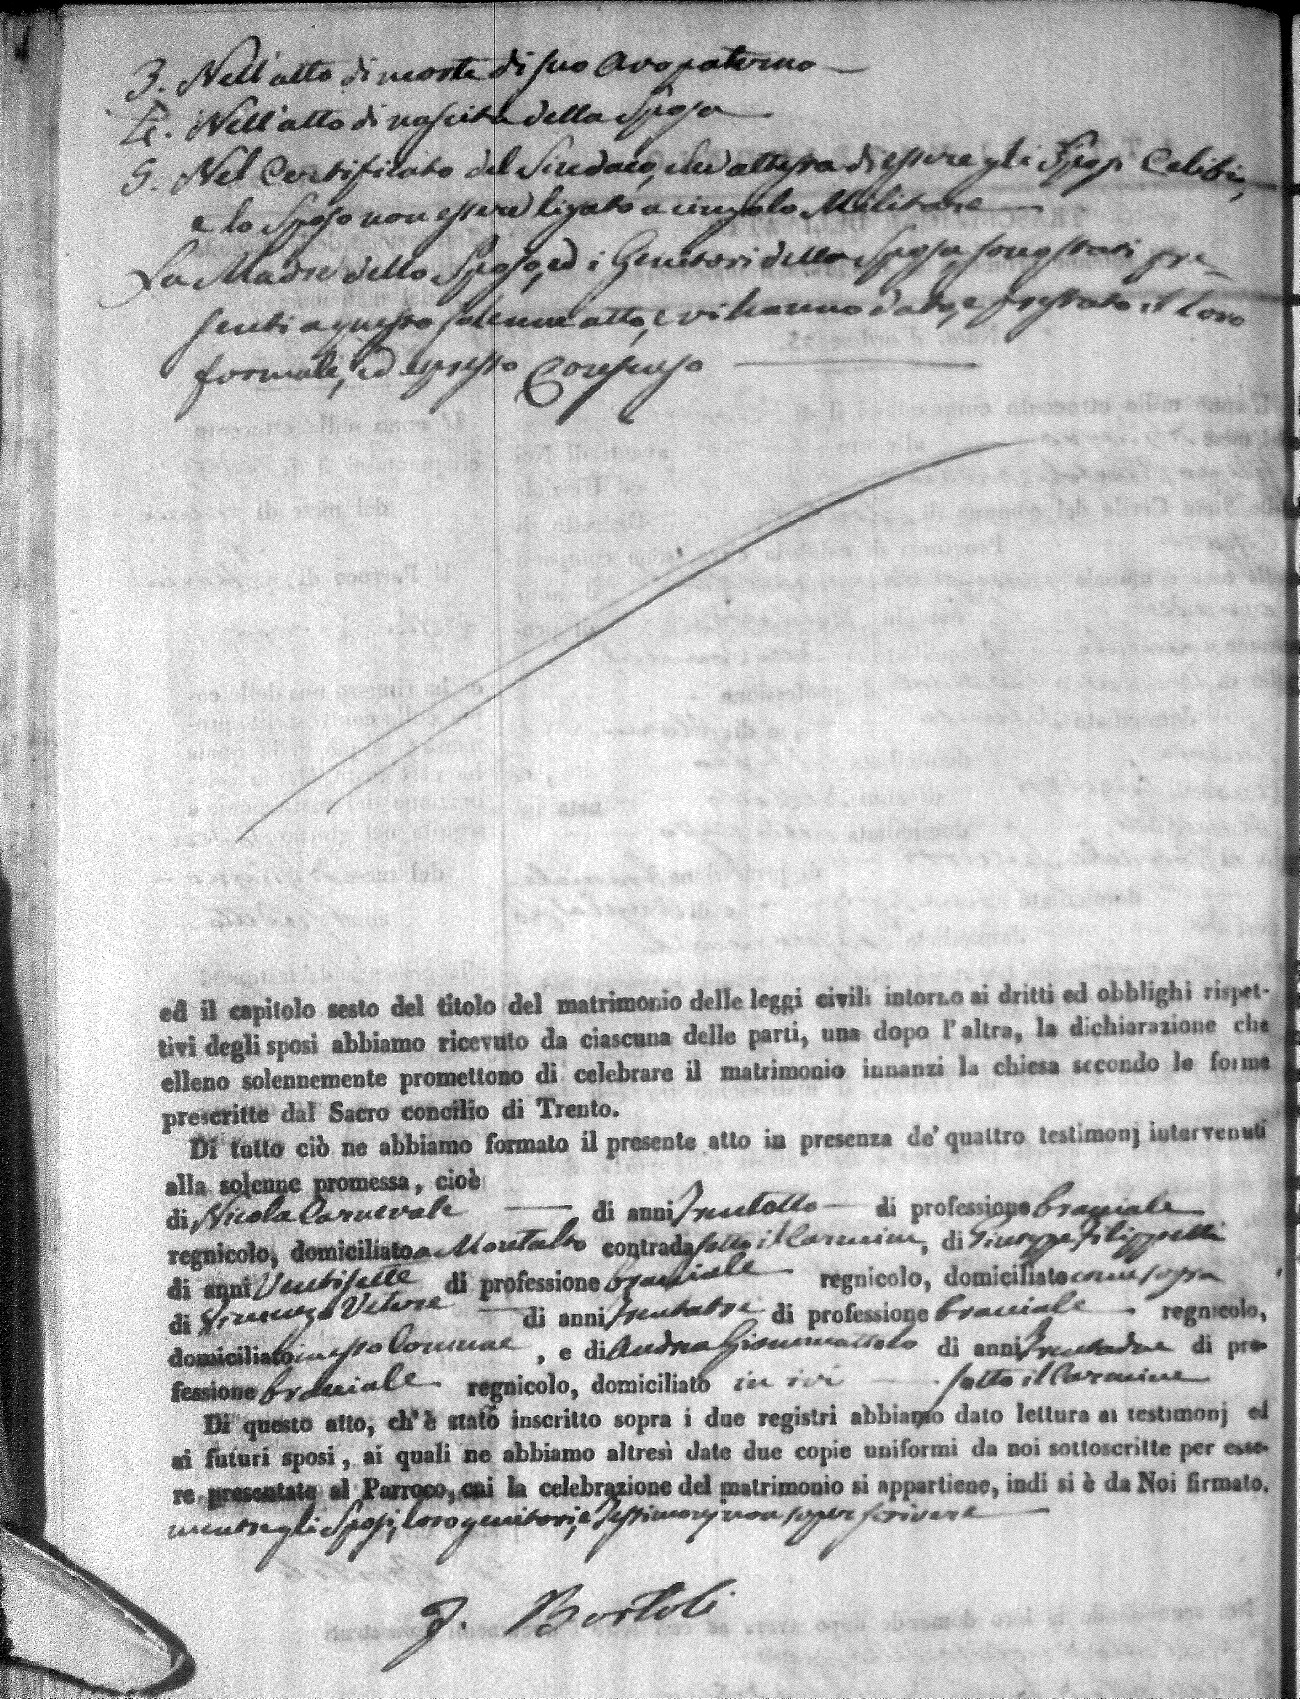 3. Nell'atto di morte di suo Avo paterno
4. Nell'atto di nascita della Sposa
5. Nel Certificato del Sindaco, che attesta di essere gli Sposi Celibi,
e lo Sposo non essere ligato a cingolo Militare
La Madre dello Sposo, ed i Genitori della Sposa sono stati pre-
senti a questo solenne atto, e vi hanno dato, e prestato il loro
formale, ed espresso Consenso
ed il capitolo sesto del titolo del matrimonio delle leggi civili intorno ai dritti ed obblighi rispet-
tivi degli sposi abbiamo ricevuto da ciascuna delle parti, una dopo l'altra, la dichiarazione che
elleno solennemente promettono di celebrare il matrimonio innanzi la chiesa secondo le forme
prescritte dal Sacro concilio di Trento.
Di tutto ciò ne abbiamo formato il presente atto in presenza de' quattro testimonj intervenuti
alla solenne promessa, cioè
di Nicola Carnevale di anni Trentotto di professione bracciale
regnicolo, domiciliato a Montalto contrada sotto il Carmine, di Giuseppe Filippelli
di anni Ventisette di professione bracciale regnicolo, domiciliato come sopra
di Vincenzo Vitere di anni Trentatre di professione bracciale regnicolo,
domiciliato in esso Comune, e di Andrea Giommattolo di anni Trentadue di pro-
fessione bracciale regnicolo, domiciliato in ivi sotto il Carmine
Di questo atto, ch'è stato inscritto sopra i due registri abbiamo dato lettura ai testimonj ed
ai futuri sposi, ai quali ne abbiamo altresì date due copie uniformi da noi sottoscritte per esse-
re presentate al Parroco, cui la celebrazione del matrimonio si appartiene, indi si è da Noi firmato.
mentre gli Sposi, loro genitori, e Testimonj non saper scrivere
F. Bartoli